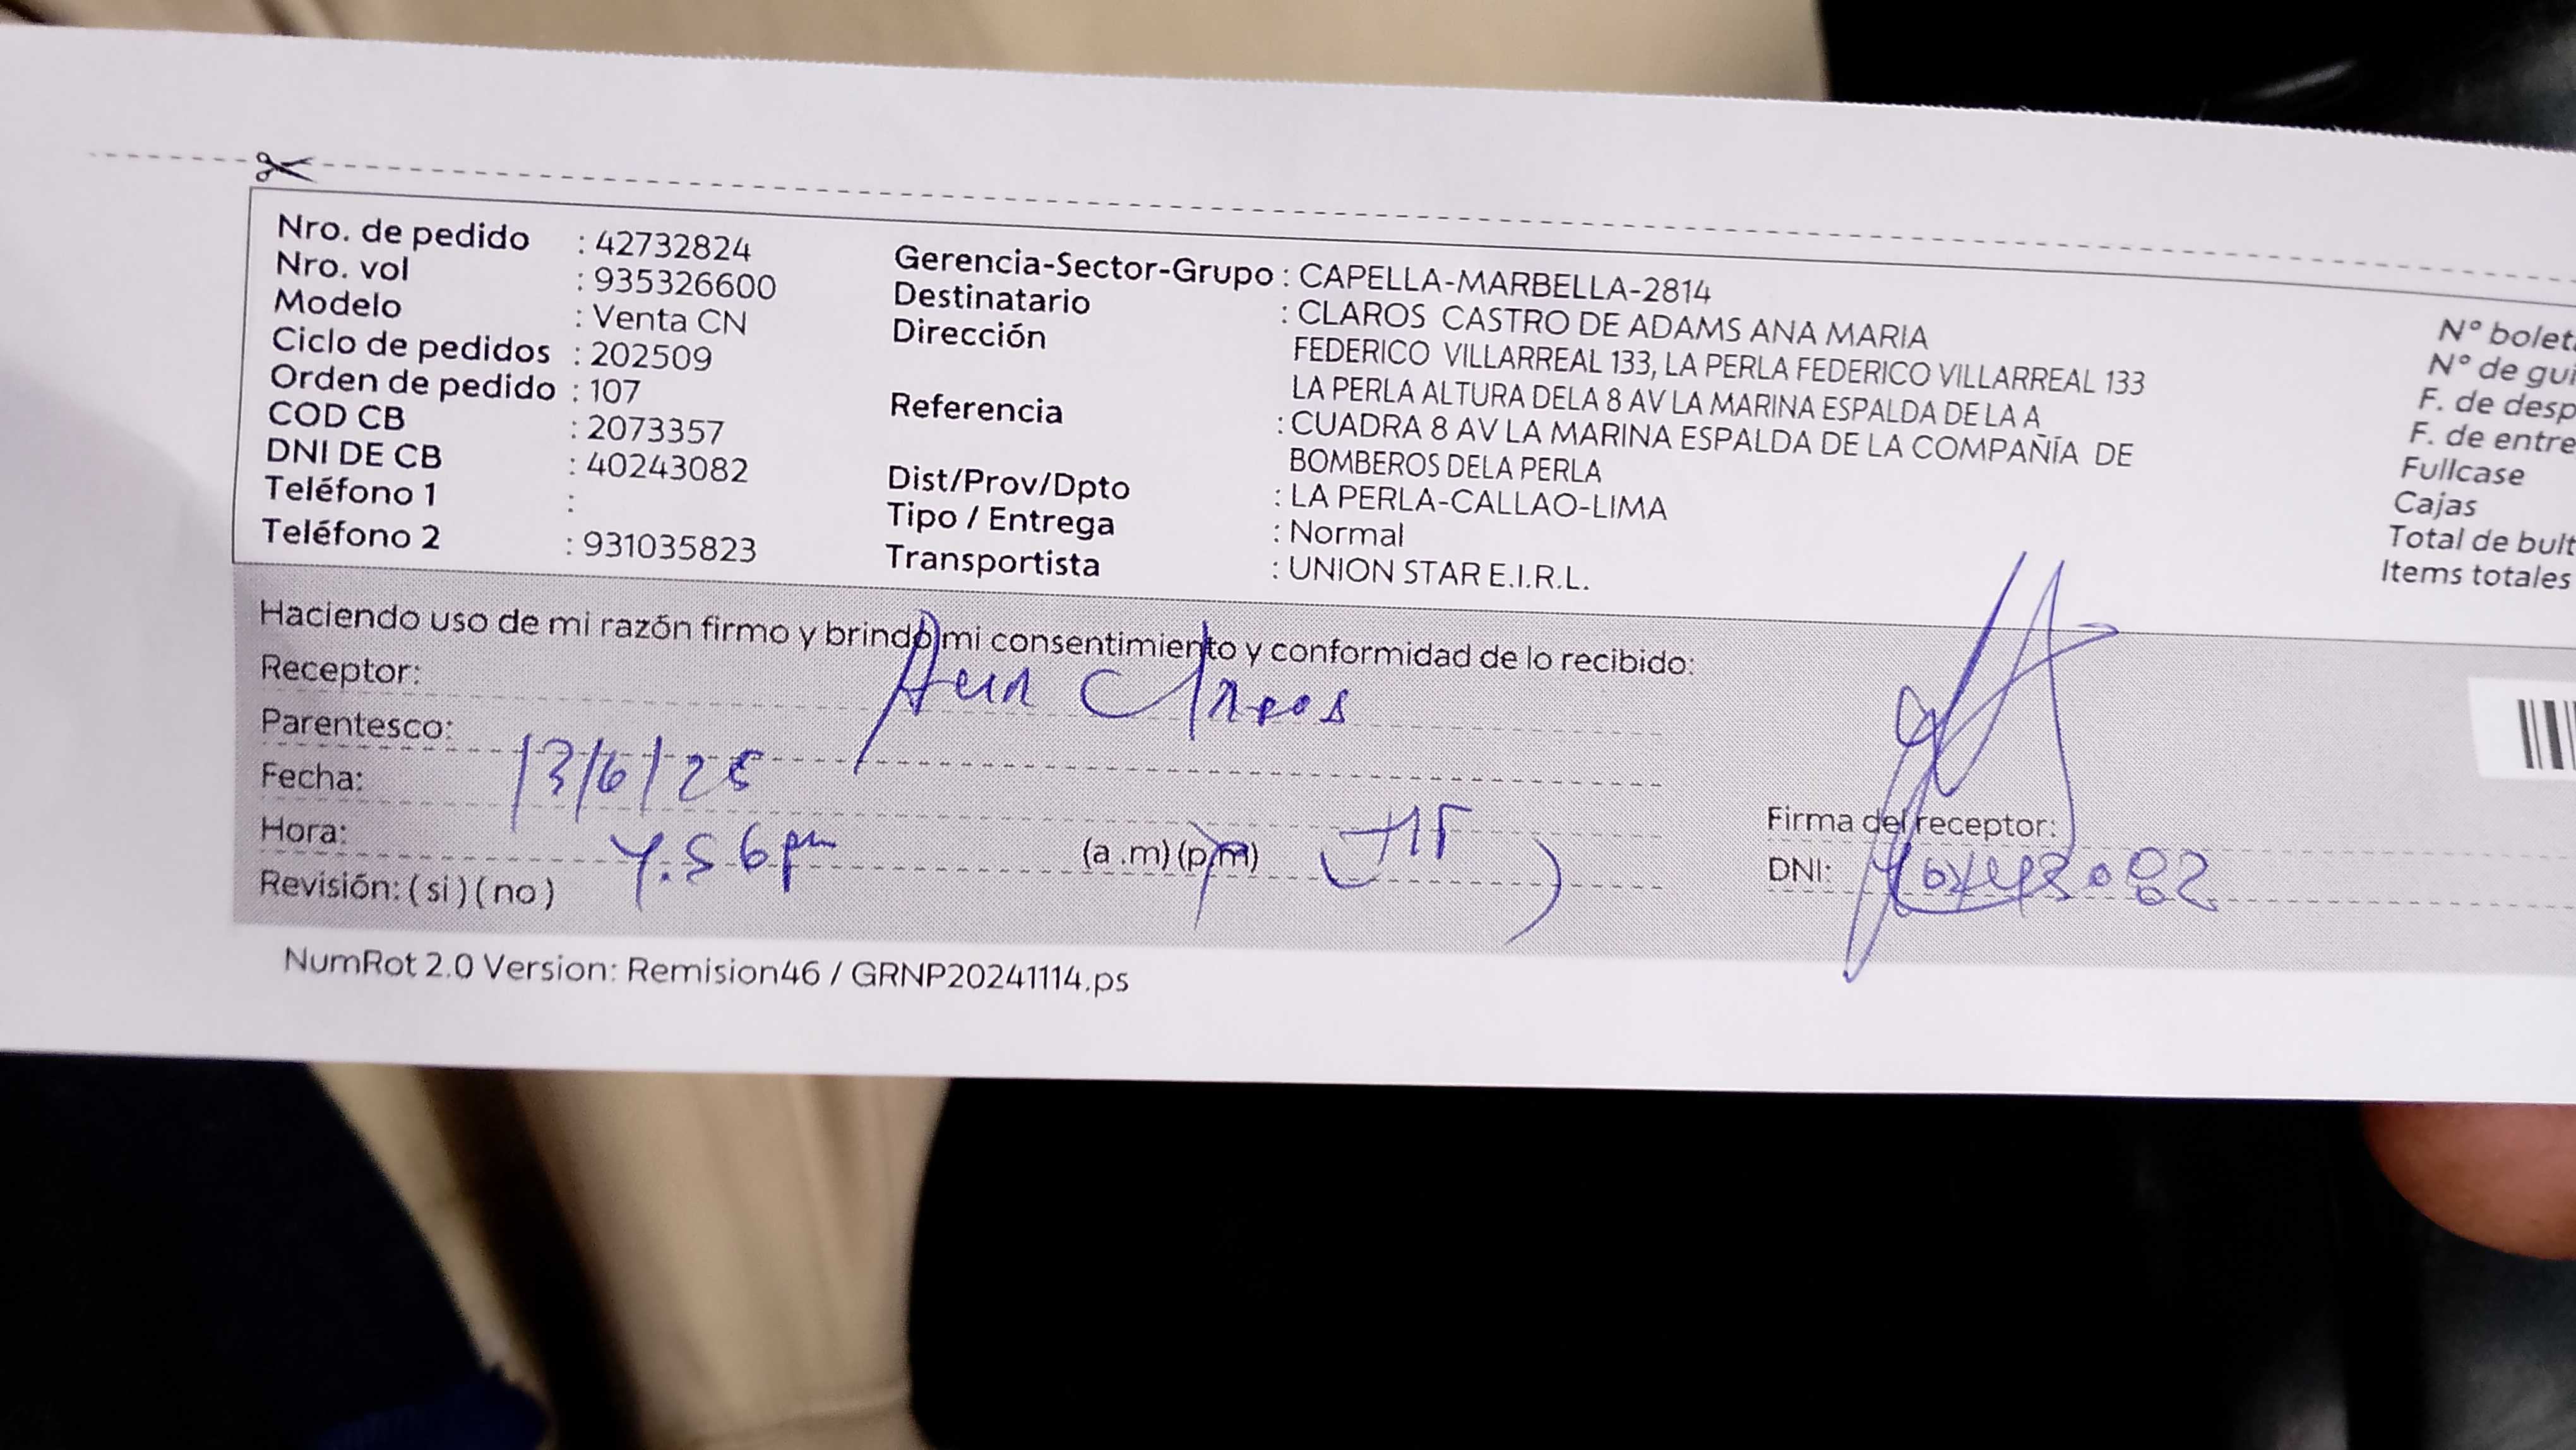 Nro. de pedido : 42732824
Nro. vol : 935326600
Modelo : Venta CN
Ciclo de pedidos : 202509
Orden de pedido : 107
COD CB : 2073357
DNI DE CB : 40243082
Teléfono 1 :
Teléfono 2 : 931035823
Gerencia-Sector-Grupo : CAPELLA-MARBELLA-2814
Destinatario : CLAROS CASTRO DE ADAMS ANA MARIA
Dirección FEDERICO VILLARREAL 133, LA PERLA FEDERICO VILLARREAL 133
LA PERLA ALTURA DELA 8 AV LA MARINA ESPALDA DE LA A
Referencia : CUADRA 8 AV LA MARINA ESPALDA DE LA COMPAÑÍA DE
BOMBEROS DELA PERLA
Dist/Prov/Dpto : LA PERLA-CALLAO-LIMA
Tipo / Entrega : Normal
Transportista : UNION STAR E.I.R.L.
N° bolet
N° de gui
F. de desp
F. de entre
Fullcase
Cajas
Total de bult
Items totales
Haciendo uso de mi razón firmo y brindo mi consentimiento y conformidad de lo recibido:
Receptor: Claros
Parentesco:
Fecha: 13/6/25
Hora: 4.56pm (a .m) (p.m)
Revisión: ( si ) ( no )
Firma del receptor:
DNI:
NumRot 2.0 Version: Remision46 / GRNP20241114.ps